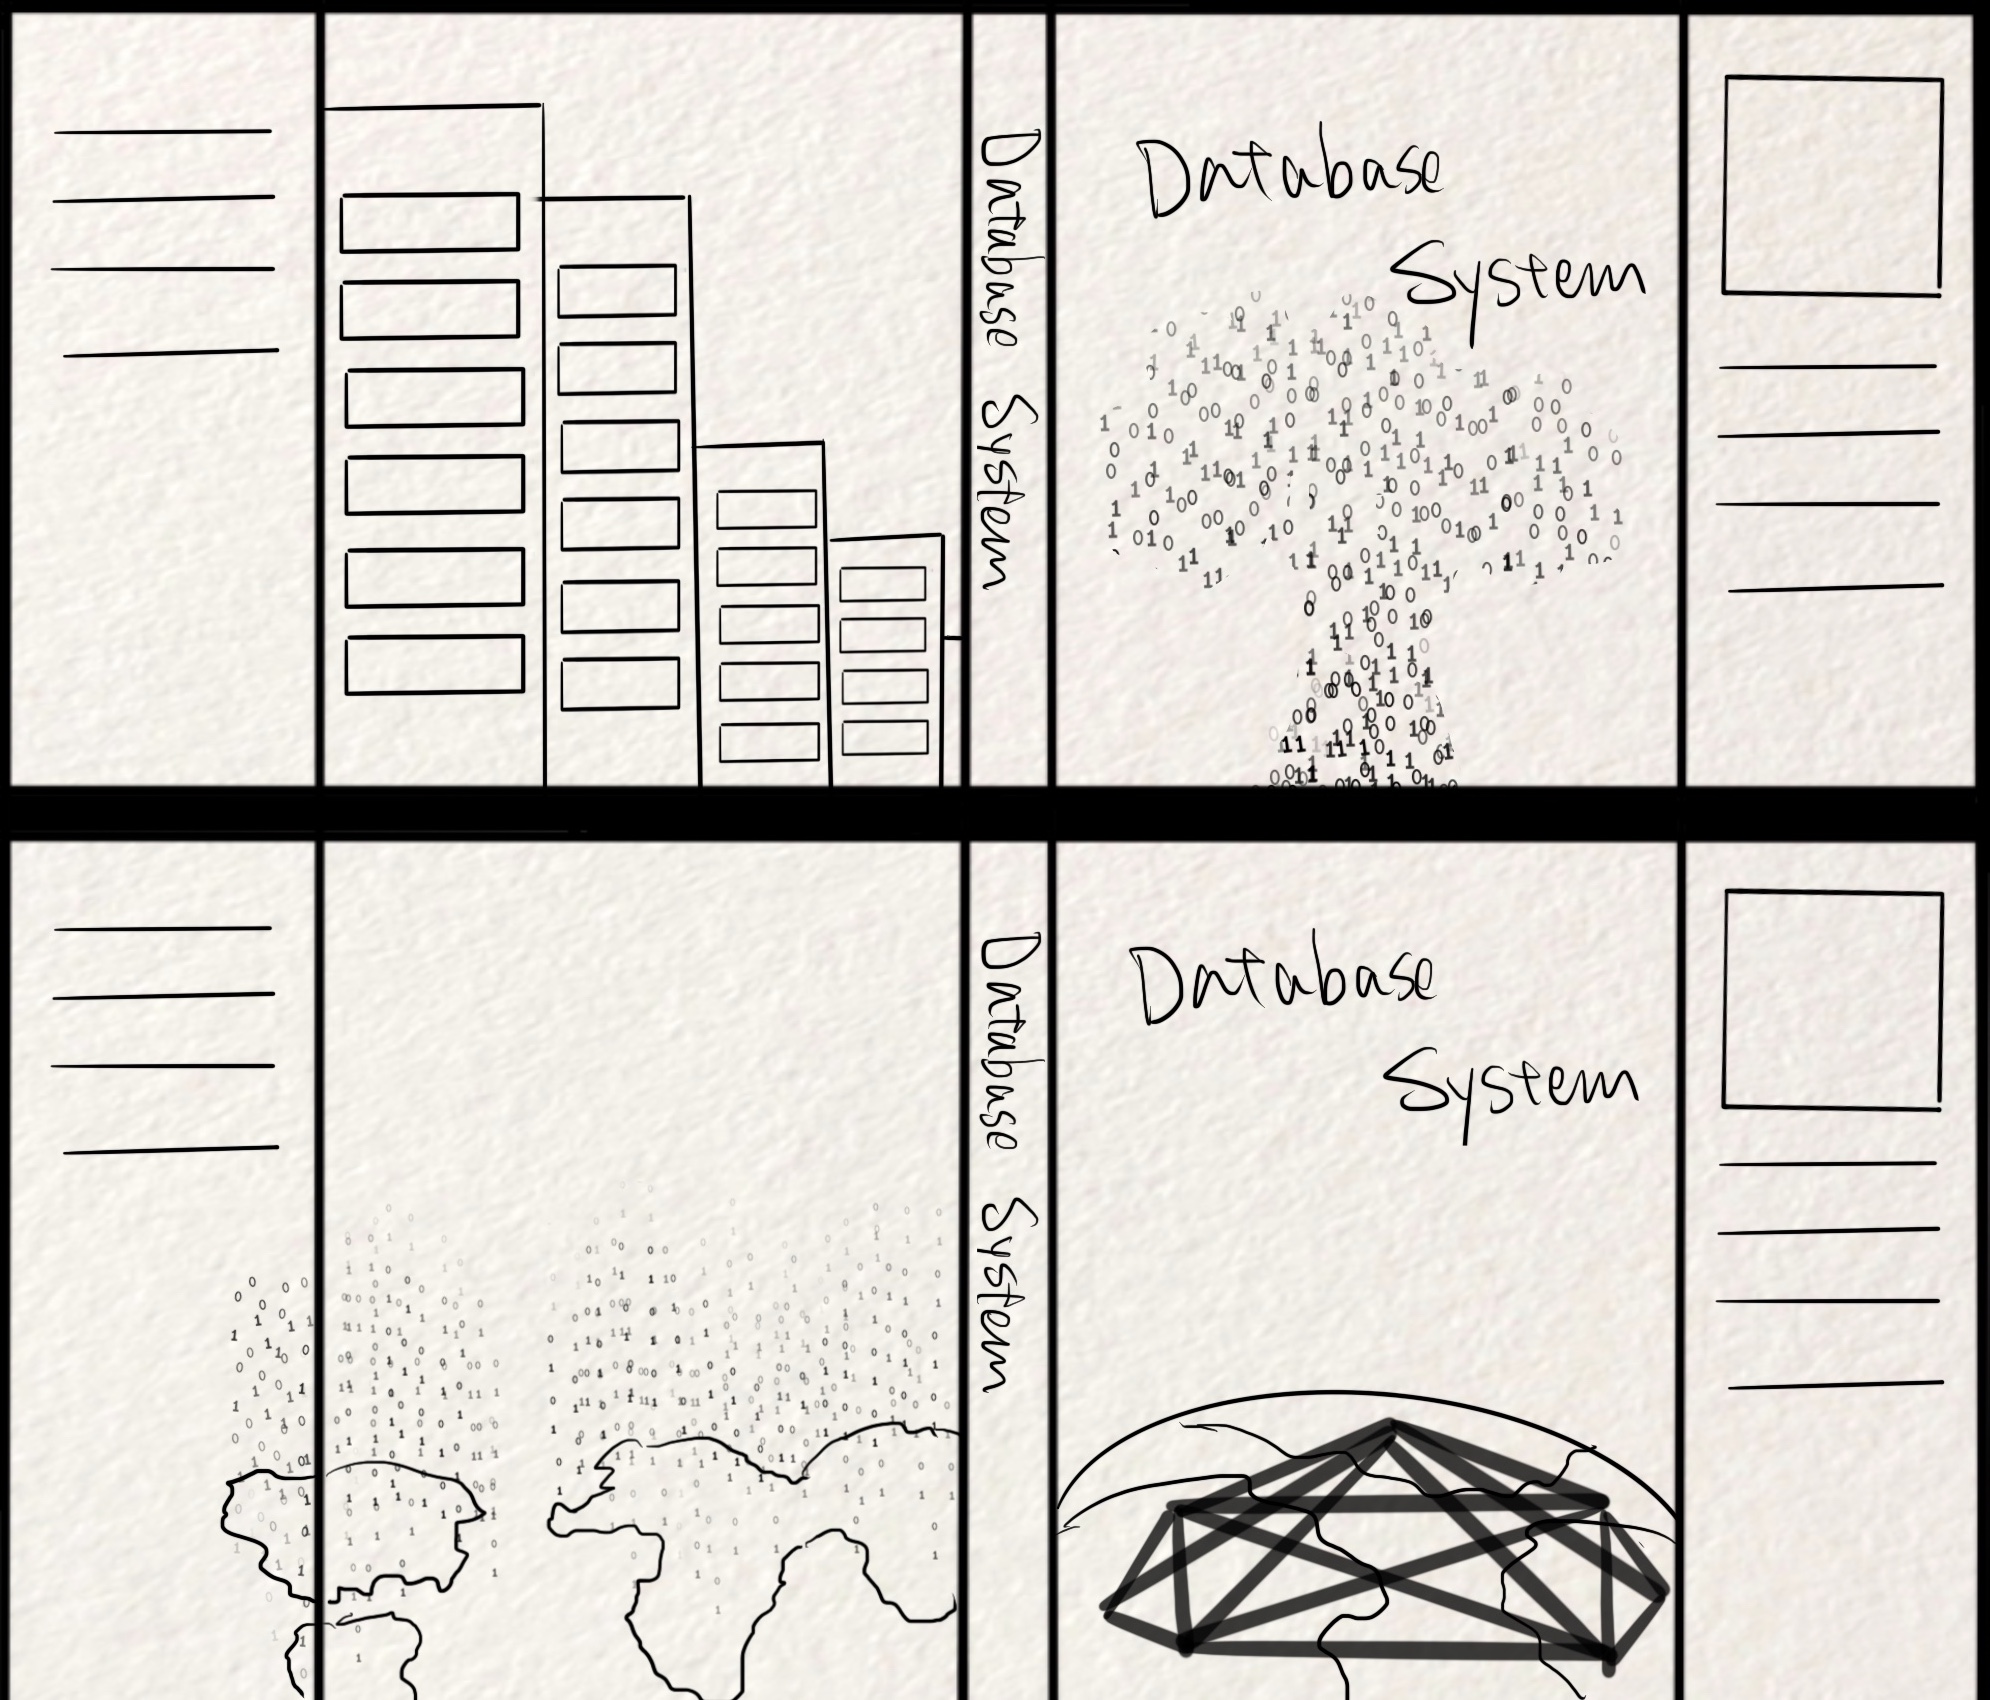 Database System
Database
System
Database System
Database
System